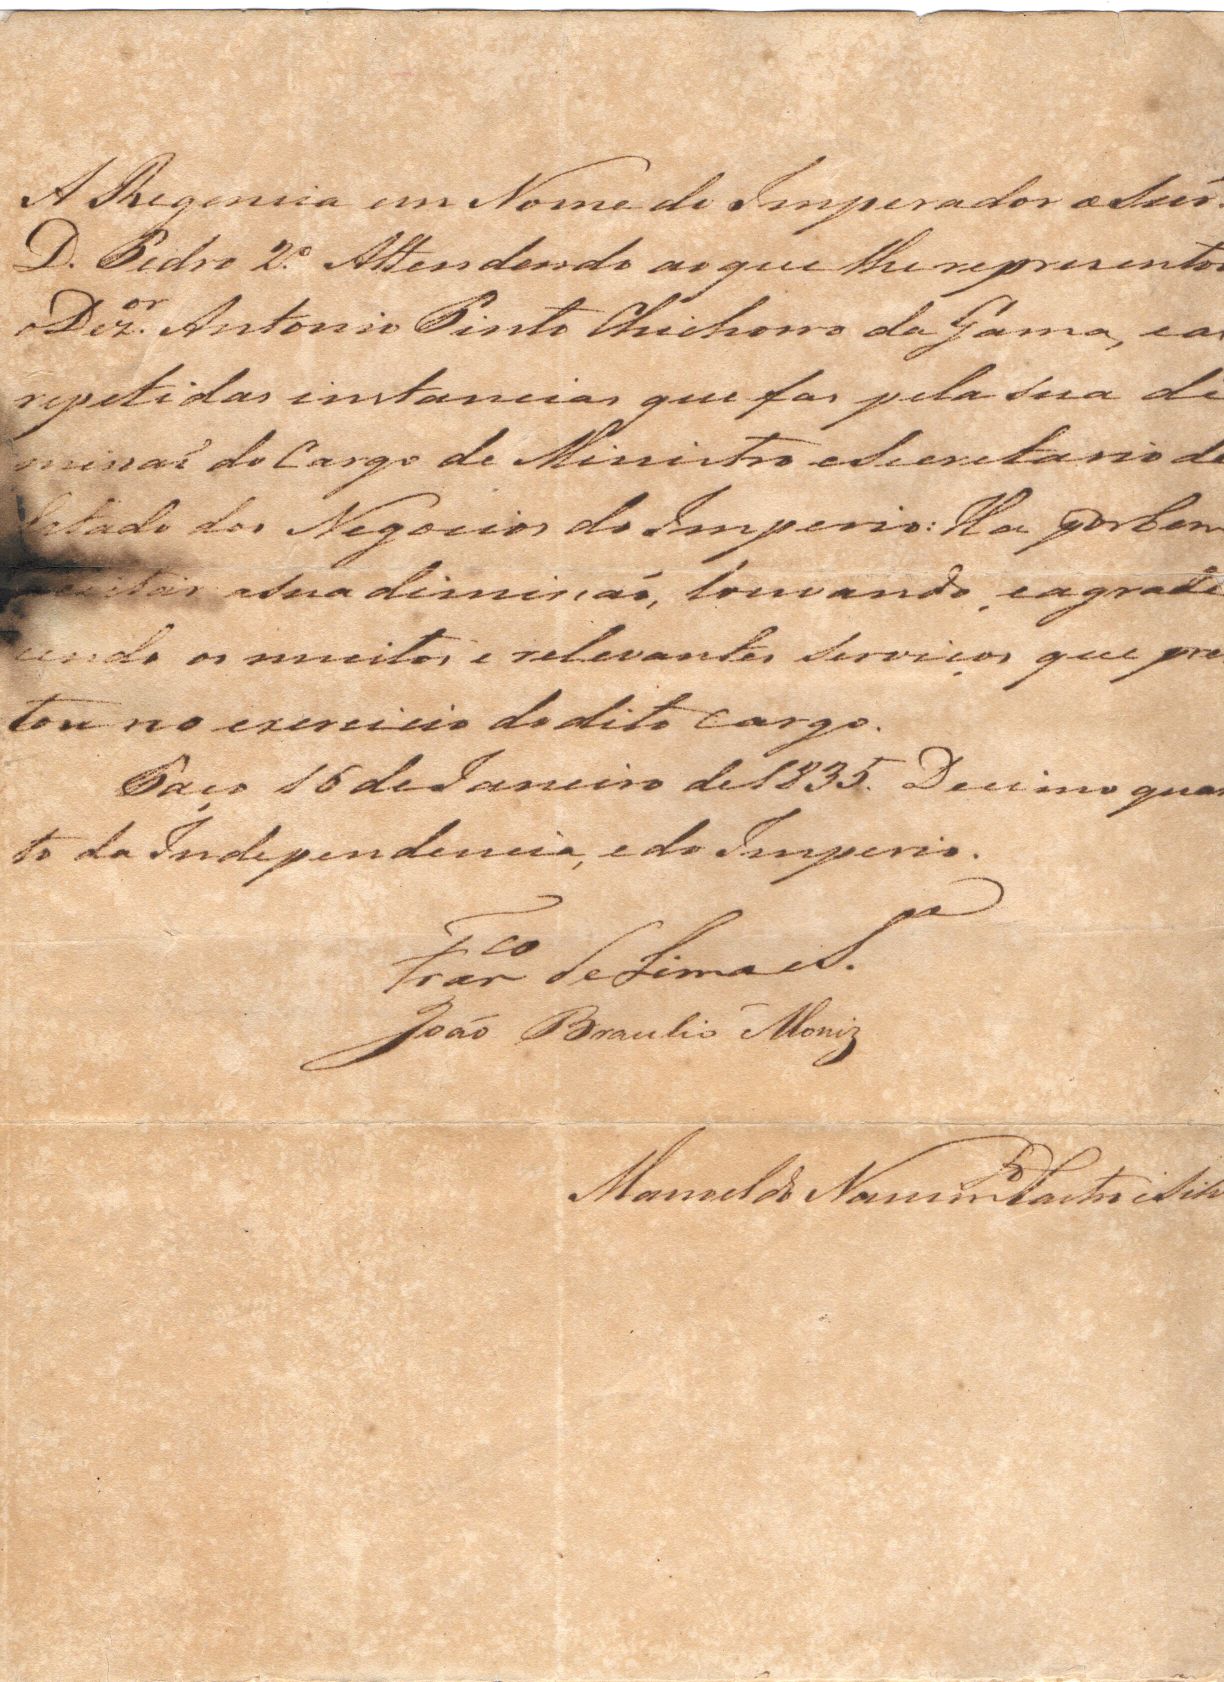 A Regencia em Nome do Imperador o Snr.
D. Pedro 2.º Attendendo ao que lhe representou
o Dez.or Antonio Pinto Chichorro da Gama, e as
repetidas instancias que fas pela sua di
minaõ do Cargo de Ministro e Secretario de
Estado dos Negocios do Imperio: Ha por bem
aceitar a sua diminaõ, louvando, e agrade
cendo os muitos e relevantes serviços que pres
tou no exercicio do dito cargo.
Paço 16 de Janeiro de 1835. Decimo quar
to da Independencia, e do Imperio.
Franco de Lima e S.a
João Braulio Moniz
Manoel do Nascim.to Castro e Silv